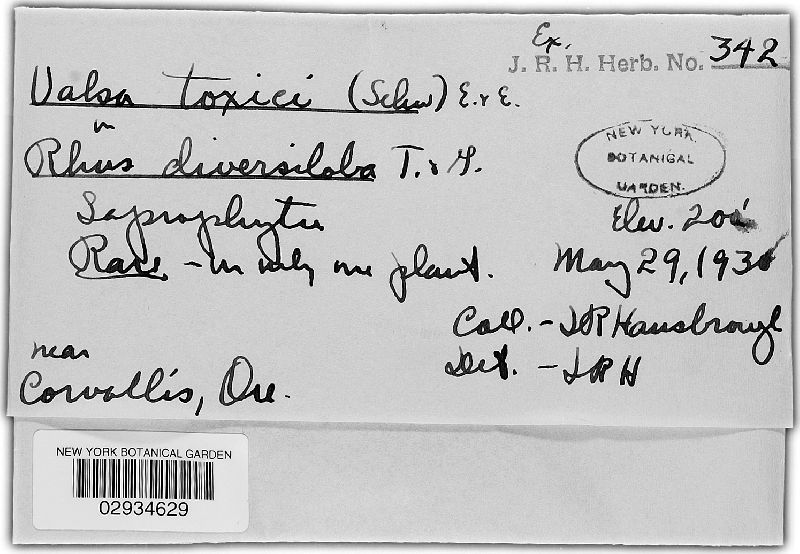 Ex.
J. R. H. Herb. No. 342
Valsa toxici (Schw) E. & E.
in
Rhus diversiloba T. & G.
NEW YORK
BOTANICAL
GARDEN.
Saprophytic
Elev. 200'
Rare - on only one plant.
May 29, 193
Coll. - JR Hansbrough
near
Det. - JRH
Corvallis, Ore.
NEW YORK BOTANICAL GARDEN
02934629